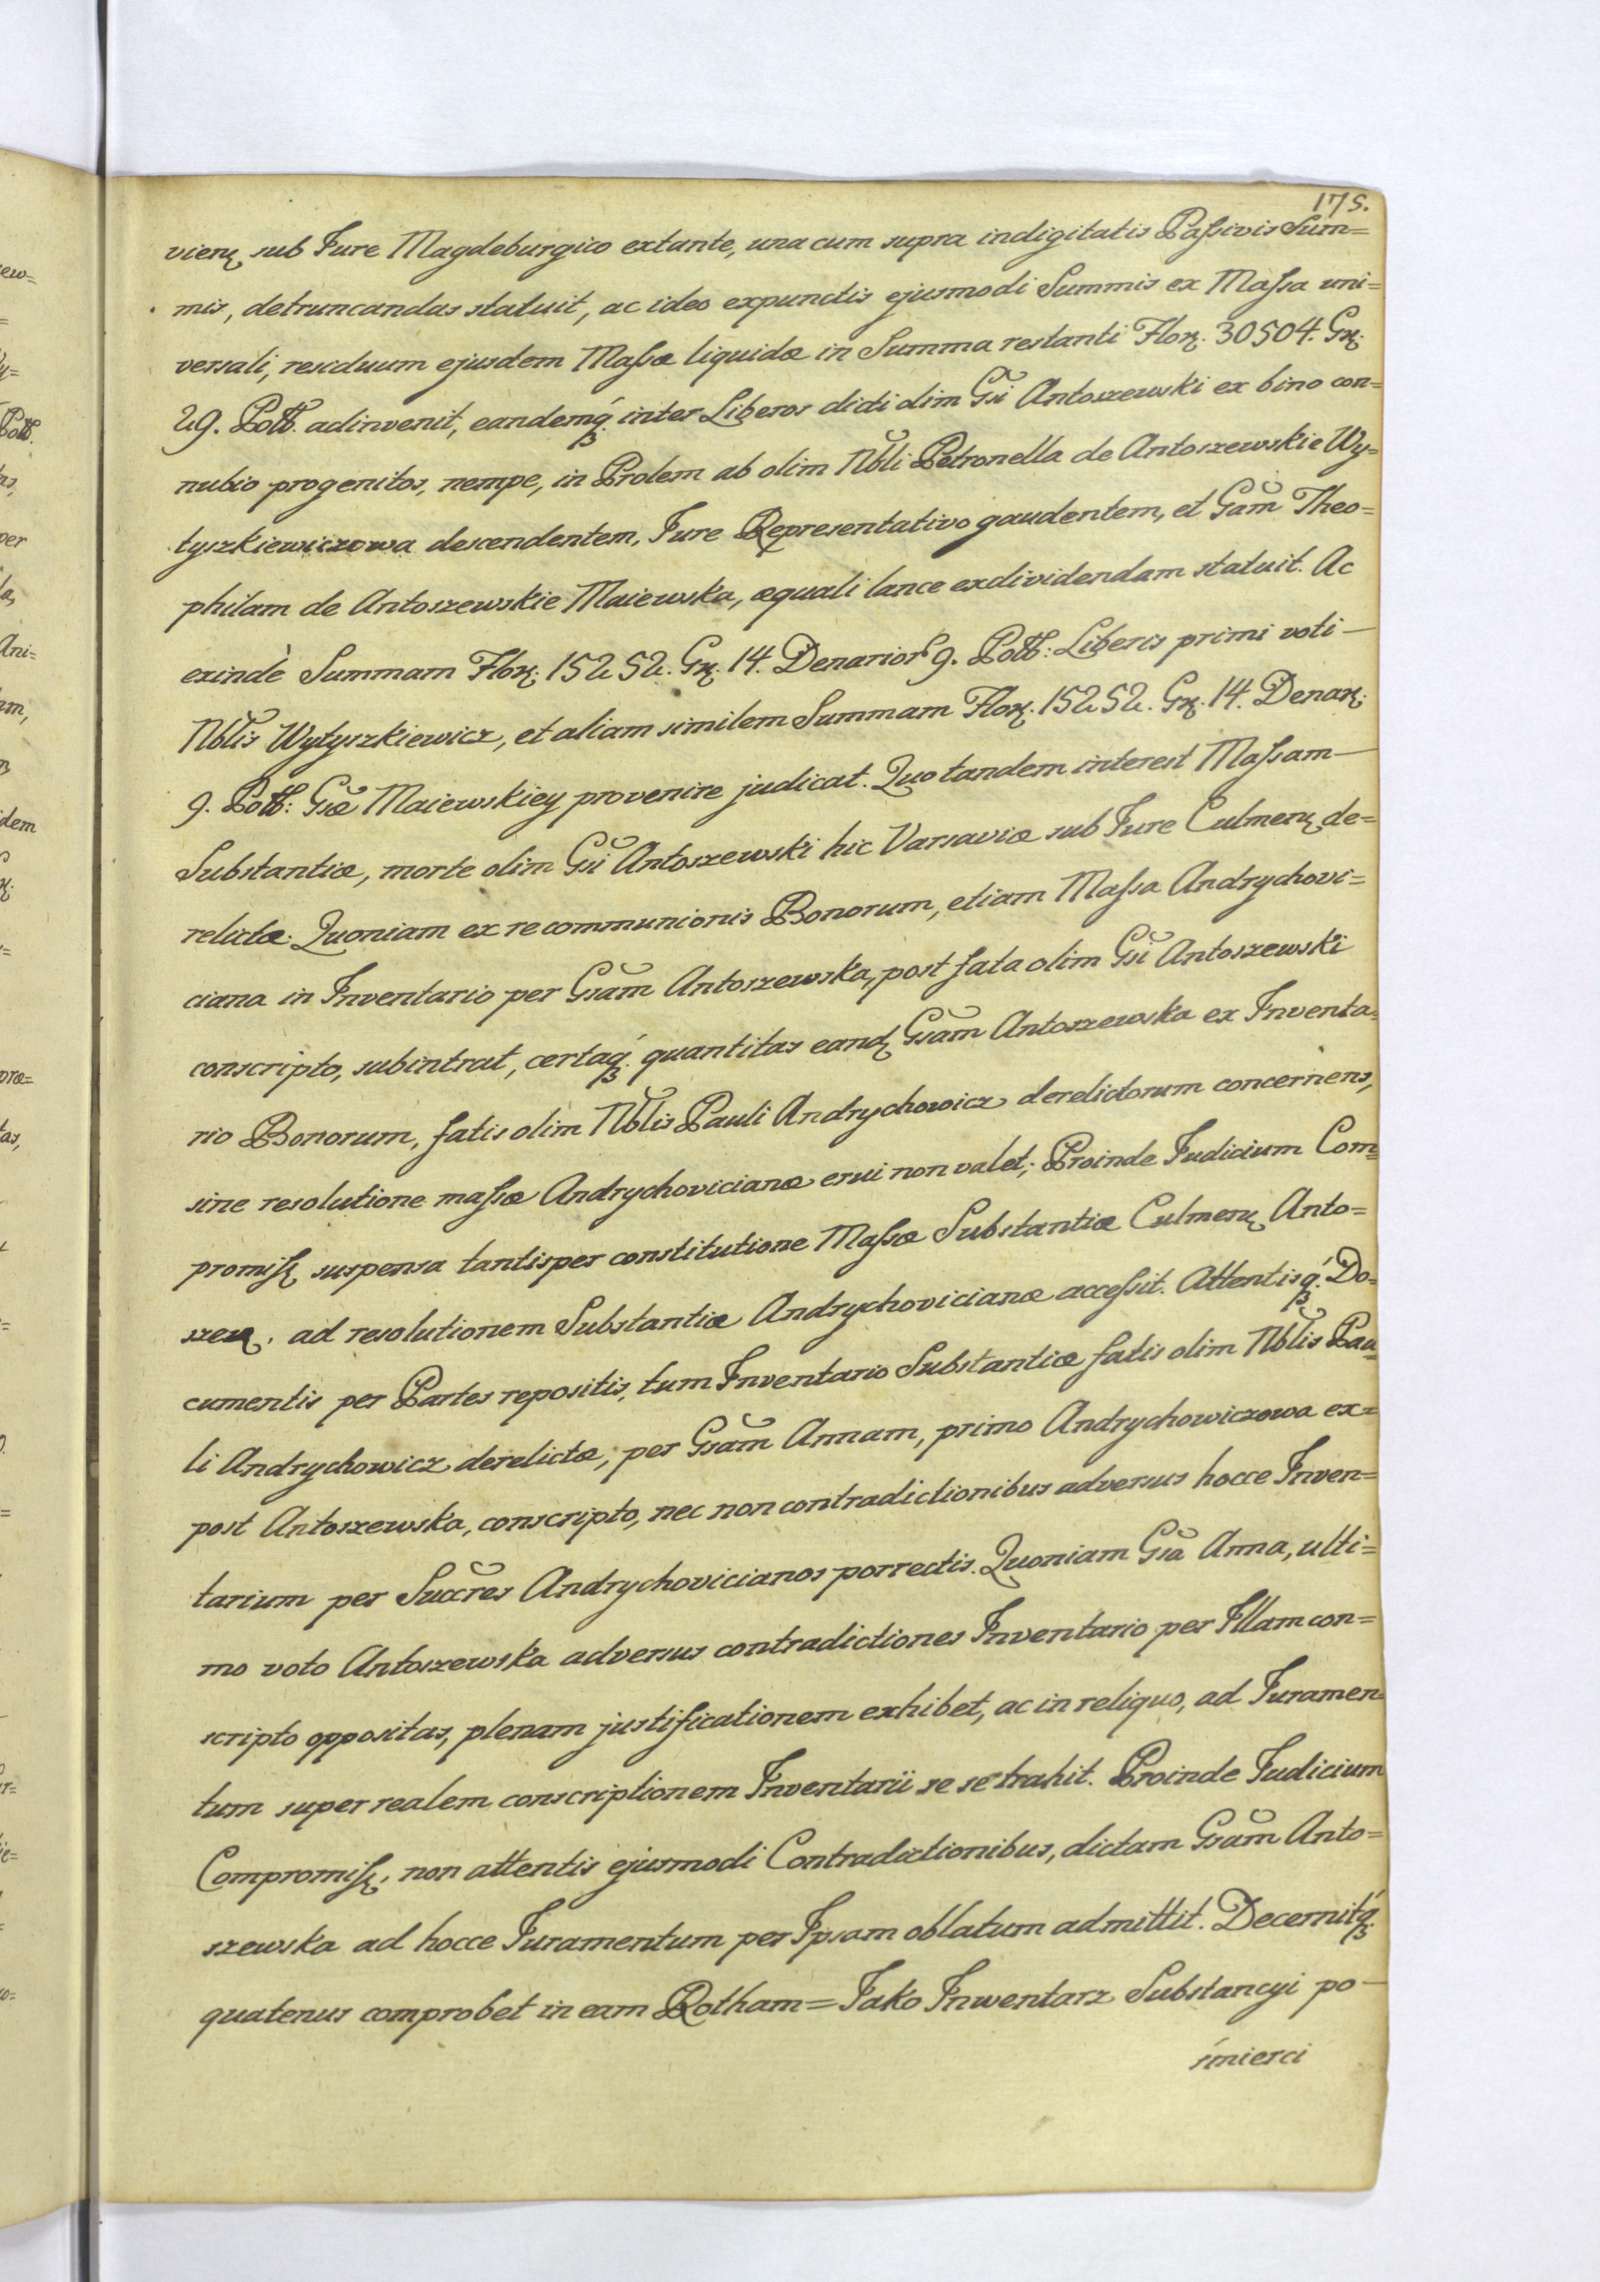 175.
vien: sub Jure Magdeburgico extante, una cum supra indigitatis Passivis Sum=
mis, detruncandas statuit, ac ideo expunctis ejusmodi Summis ex Massa uni=
versali, residuum ejusdem Massæ liquidæ in Summa restanti Flor: 30504. Gr:
29. Poll. adinvenit, eandemq́ꝫ inter Liberos dicti olim Gsi Antoszewski ex bino con=
nubio progenitos, nempe, in Prolem ab olim Nbli Petronella de Antoszewskie Wy=
tyszkiewiczowa descendentem, Jure Representativo gaudentem, et Gam̃ Theo=
philam de Antoszewskie Maiewska, æquali lance exdividendam statuit. Ac
exindè Summam Flor: 15252. Gr: 14. Denarior 9. Poll: Liberis primi voti—
Nblis Wytyszkiewicz, et aliam similem Summam Flor: 15252. Gr: 14. Denar:
9. Poll: Gsæ Maiewskiey provenire judicat. Quo tandem interest Massam—
Substantiæ, morte olim Gsi Antoszewski hic Varsaviæ sub Jure Culmen: de=
relictæ. Quoniam ex re communionis Bonorum, etiam Massa Andrychovi=
ciana in Inventario per Gsam̃ Antoszewska, post fata olim Gsi Antoszewski
conscripto, subintrat, certaq́ꝫ quantitas eand: Gsam̃ Antoszewska ex Inventa=
rio Bonorum, fatis olim Nblis Pauli Andrychowicz derelictorum concernens,
sine resolutione massæ Andrychovicianæ erui non valet; Proinde Judicium Com=
promiss: suspensa tantisper constitutione Massæ Substantiæ Culmen: Anto=
szew:, ad resolutionem Substantiæ Andrychovicianæ accessit. Attentisq́ꝫ Do=
cumentis per Partes repositis, tum Inventario Substantiæ fatis olim Nblis Pau=
li Andrychowicz derelictæ, per Gsam̃ Annam, primo Andrychowiczowa ex=
post Antoszewska, conscripto, nec non contradictionibus adversus hocce Inven=
tarium per Succres Andrychovicianos porrectis. Quoniam Gsa Anna, ulti=
mo voto Antoszewska adversus contradictiones Inventario per Illam con=
scripto oppositas, plenam justificationem exhibet, ac in reliquo, ad Juramen=
tum super realem conscriptionem Inventarii se se trahit. Proinde Judicium
Compromiss:, non attentis ejusmodi Contradictionibus, dictam Gsam̃ Anto=
szewska ad hocce Juramentum per Ipsam oblatum admittit. Decernitq́ꝫ
quatenus comprobet in eam Rotham= Jako Inwentarz Substancyi po—
śmierci